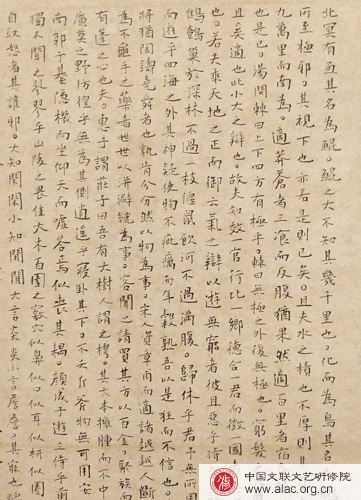 北冥有魚其名為鯤。鯤之大不知其幾千里也。化而為鳥其名
所至極邪。其視下也亦若是則已矣。且夫水之積也不厚則其
九萬里而南為。適莽蒼者三飡而反腹猶果然適百里者宿
也是已。湯問棘曰上下四方有極乎。棘曰無極之外復無極也。窮髮
且奚適也此小大之辯也。故夫知效一官行比一鄉德合一君而徵一國
也。若夫乘天地之正而御六氣之辯以遊無窮者彼且惡乎待
鷦鷯巢於深林不過一枝偃鼠飲河不過滿腹。歸休乎君予無所用
而遊乎四海之外其神凝使物不疵癘而年穀熟吾以是狂而不信也。
將猶陶鑄堯舜者也孰肯分分然以物為事。宋人資章甫而適諸越越人斷
為不龜手之藥者世世以洴澼絖為事。客聞之請買其方以百金。聚族而
有蓬之心也夫。惠子謂莊子曰吾有大樹人謂之樗。其大本擁腫而不中
廣莫之野彷徨乎無為其側逍遙乎寢臥其下。不夭斤斧物無可用安
南郭子綦隱機而坐仰天而噓荅焉似喪其耦。顏成子游立侍乎前
獨不聞之翏翏乎山陵之畏佳大木百圍之竅穴似鼻似口似耳似枅似圈
自取怒者其誰邪。大知閑閑小知閒閒大言炎炎小言詹詹。其寐也
中国文联文艺研修院
www.alac.org.cn